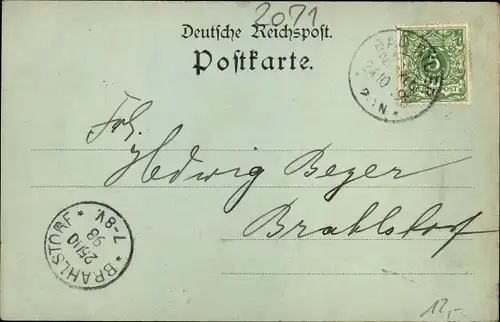 2071
Deutsche Reichspost.
Postkarte.
BAD
24/10 98
2-3 N.
5
Frl.
Hedwig Beyer
Brahlstorf
BRAHLSTORF
25/10
98
7-8V.
12,-